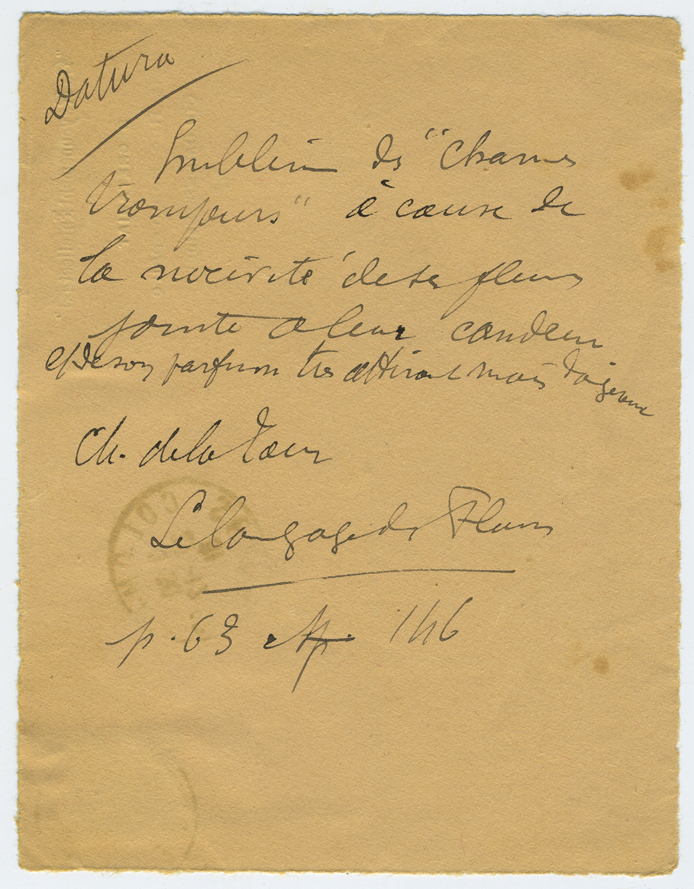 Datura
Emblème des "charmes
trompeurs" à cause de
la nocivité de ses fleurs
jointe à leur candeur
et de son parfum très attirant mais dangereux
Ch. de la Tour
Le langage des Fleurs
p. 63 et p. 146